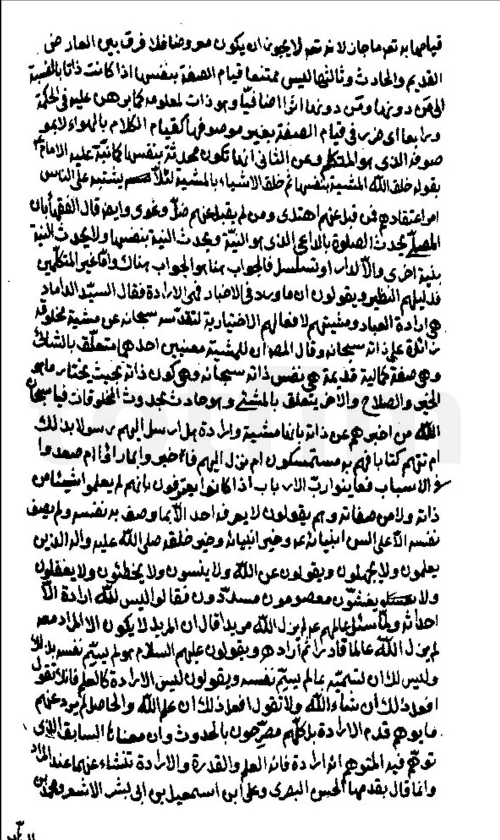 قيامها به تعه ماجاز لانه تعه لا يجوز ان يكون معروضا فلا فرق بين العارض
القديم والحادث وثالثها ليس ممتنعا قيام الصفة بنفسها اذا كانت ذاتا بالنسبة
الى من دونها ومن دونها اثرا اضافيا وهو ذات لمعلومه كما برهن عليه في الحكمة
ورابعا اى ضرر فى قيام الصفة بغير موصوفها كقيام الكلام بالهواء لا بمو
صوفه الذى هو المتكلم وعن الثانى انها تكون محدثة بنفسها كما نبّه عليه الامام ع
بقوله خلق الله المشية بنفسها ثم خلق الاشياء بالمشية لئلا يشتبه على الناس
امر اعتقادهم فمن قبل عنهم اهتدى ومن لم يقبل عنهم ضلّ وغوى وايضا قال الفقهاء بان
المصلّى يحدث الصلوة بالداعى الذى هو النيّة ويحدث النية بنفسها ولا يحدث النية
بنية اخرى والّا لدار او تسلسل فالجواب هنا هو الجواب هناك وامّا غير المتكلمين
فدليلهم النظير ويقولون ان ما ورد فى الاخبار فهى الارادة فقال السيّد الداماد
هى ارادة العباد ومشيتهم لافعالهم الاختيارية لتقدسه سبحانه عن مشية مخلوقة
زائدة على ذاته سبحانه وقال الملا صدرا ان للمشية معنيين احدهما متعلّق بالشائى
وهى صفة كمالية قديمة هى نفس ذاته سبحانه وهى كون ذاته بحيث يختار ما هو
الخير والصلاح والآخر يتعلق بالمشئ وهو حادث بحدوث المخلوقات فيا سبحان
الله من اخبرهم عن ذاته بانها مشية وارادة هل ارسل اليهم رسولا بذلك
ام اتتهم كتابا فهم به مستمسكون ام نزل اليهم فاخبر وابما راى ام صعدوا
فى الاسباب فعاينوا ربّ الارباب اذا كانوا يعرفون بانهم لم يعلموا شيئا من
ذاته ولا من صفاته وهم يقولون لا يعرفه احد الّا بما وصف به نفسه ولم يصف
نفسه الّا على السن انبيائه عه وخير انبيائه وخير خلقه صلى الله عليه واله الذين
يعلمون ولا يجهلون ويقولون عن الله ولا ينسون ولا يخطئون ولا يغفلون
ولا يغشّون معصومون مسدّدون فقالوا ليس لله ارادة الّا
احداثه ولمّا سئل عالمهم عه لم يزل الله مريدا قال ان المريد لا يكون الا المراد معه
لم يزل الله عالما قادرا ثم اراد هو ويقولون عليهم السلام هو لم يسمّ نفسه بذلك
وليس لك ان تسمّيه بما لم يسمّ نفسه ويقولون ليس الارادة كالعلم فانك تقول
افعل ذلك ان شاء الله ولا تقول افعل ذلك ان علم الله والحاصل لم يرد عنهم
ما يوهم قدم الارادة بل كلهم مصرّحون بالحدوث وان معناها السابق الذى
توهّم فيه المتوهم انه ارادة فانه العلم والقدرة والارادة تنشاء عنهما عند المراد
وانما قال بقدمها الحسن البصرى وعلى ابن اسمعيل بن ابى بشر الاشعرى ومحمد بن